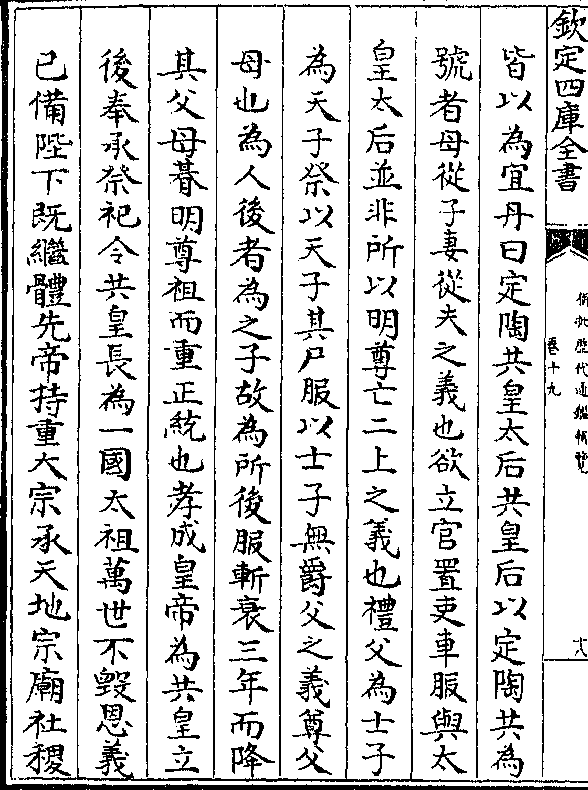 欽定四庫全書
御批歷代通鑑輯覽
卷十九
皆以為宜丹曰定陶共皇太后共皇后以定陶共為
號者母從子妻從夫之義也欲立官置吏車服與太
皇太后並非所以明尊亡二上之義也禮父為士子
為天子祭以天子其尸服以士子無爵父之義尊父
母也為人後者為之子故為所後服斬衰三年而降
其父母朞明尊祖而重正統也孝成皇帝為共皇立
後奉承祭祀令共皇長為一國太祖萬世不毀恩義
已備陛下既繼體先帝持重大宗承天地宗廟社稷